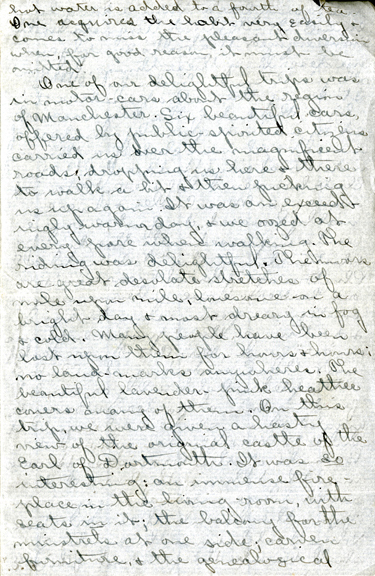 hot water is added to a fourth of tea
One acquires the habit very easily &
comes to miss the pleasant diversion
when, for good reason, it must be
omitted.
One of our delightful trips was
in motor-cars about the region
of Manchester. Six beautiful cars,
offered by public-spirited citizens
carried us over the magnificent
roads, dropping us here & there
to walk a bit & then picking
us up again. It was an exceed-
ingly warm day, & we oozed at
every pore when walking. The
riding was delightful. The moors
are great desolate stretches of
mile upon mile, lonesome on a
bright day & most dreary in fog
& cold. Many people have been
lost upon them for hours & hours;
no land-marks anywhere. The
beautiful lavender-pink heather
covers many of them. On this
trip, we were given a hasty
view of the original castle of the
Earl of Dartmouth. It was so
interesting: an immense fire
place in the living-room, with
seats in it; the balcony for the
minstrels at one side; carven
furniture, & the genealogical